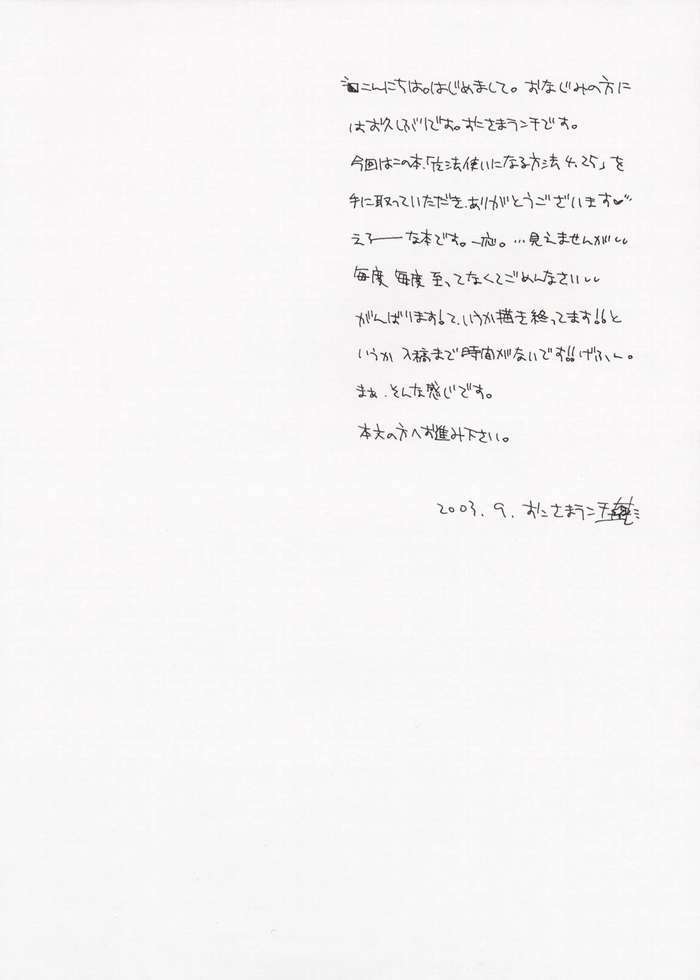 こんにちは。はじめまして。おなじみの方に
はお久しぶりです。おにさまランチです。
今回はこの本、「魔法使いになる方法4.25」を
手に取っていただき、ありがとうございます♥
えろーーな本です。一応。…見えませんが
毎度毎度至ってなくてごめんなさい
がんばります!て、いうか描き終ってます!!と
いうか入稿まで時間がないです!!げふ。
まぁ、そんな感じです。
本文の方へお進み下さい。
2003.9.おにさまランチ